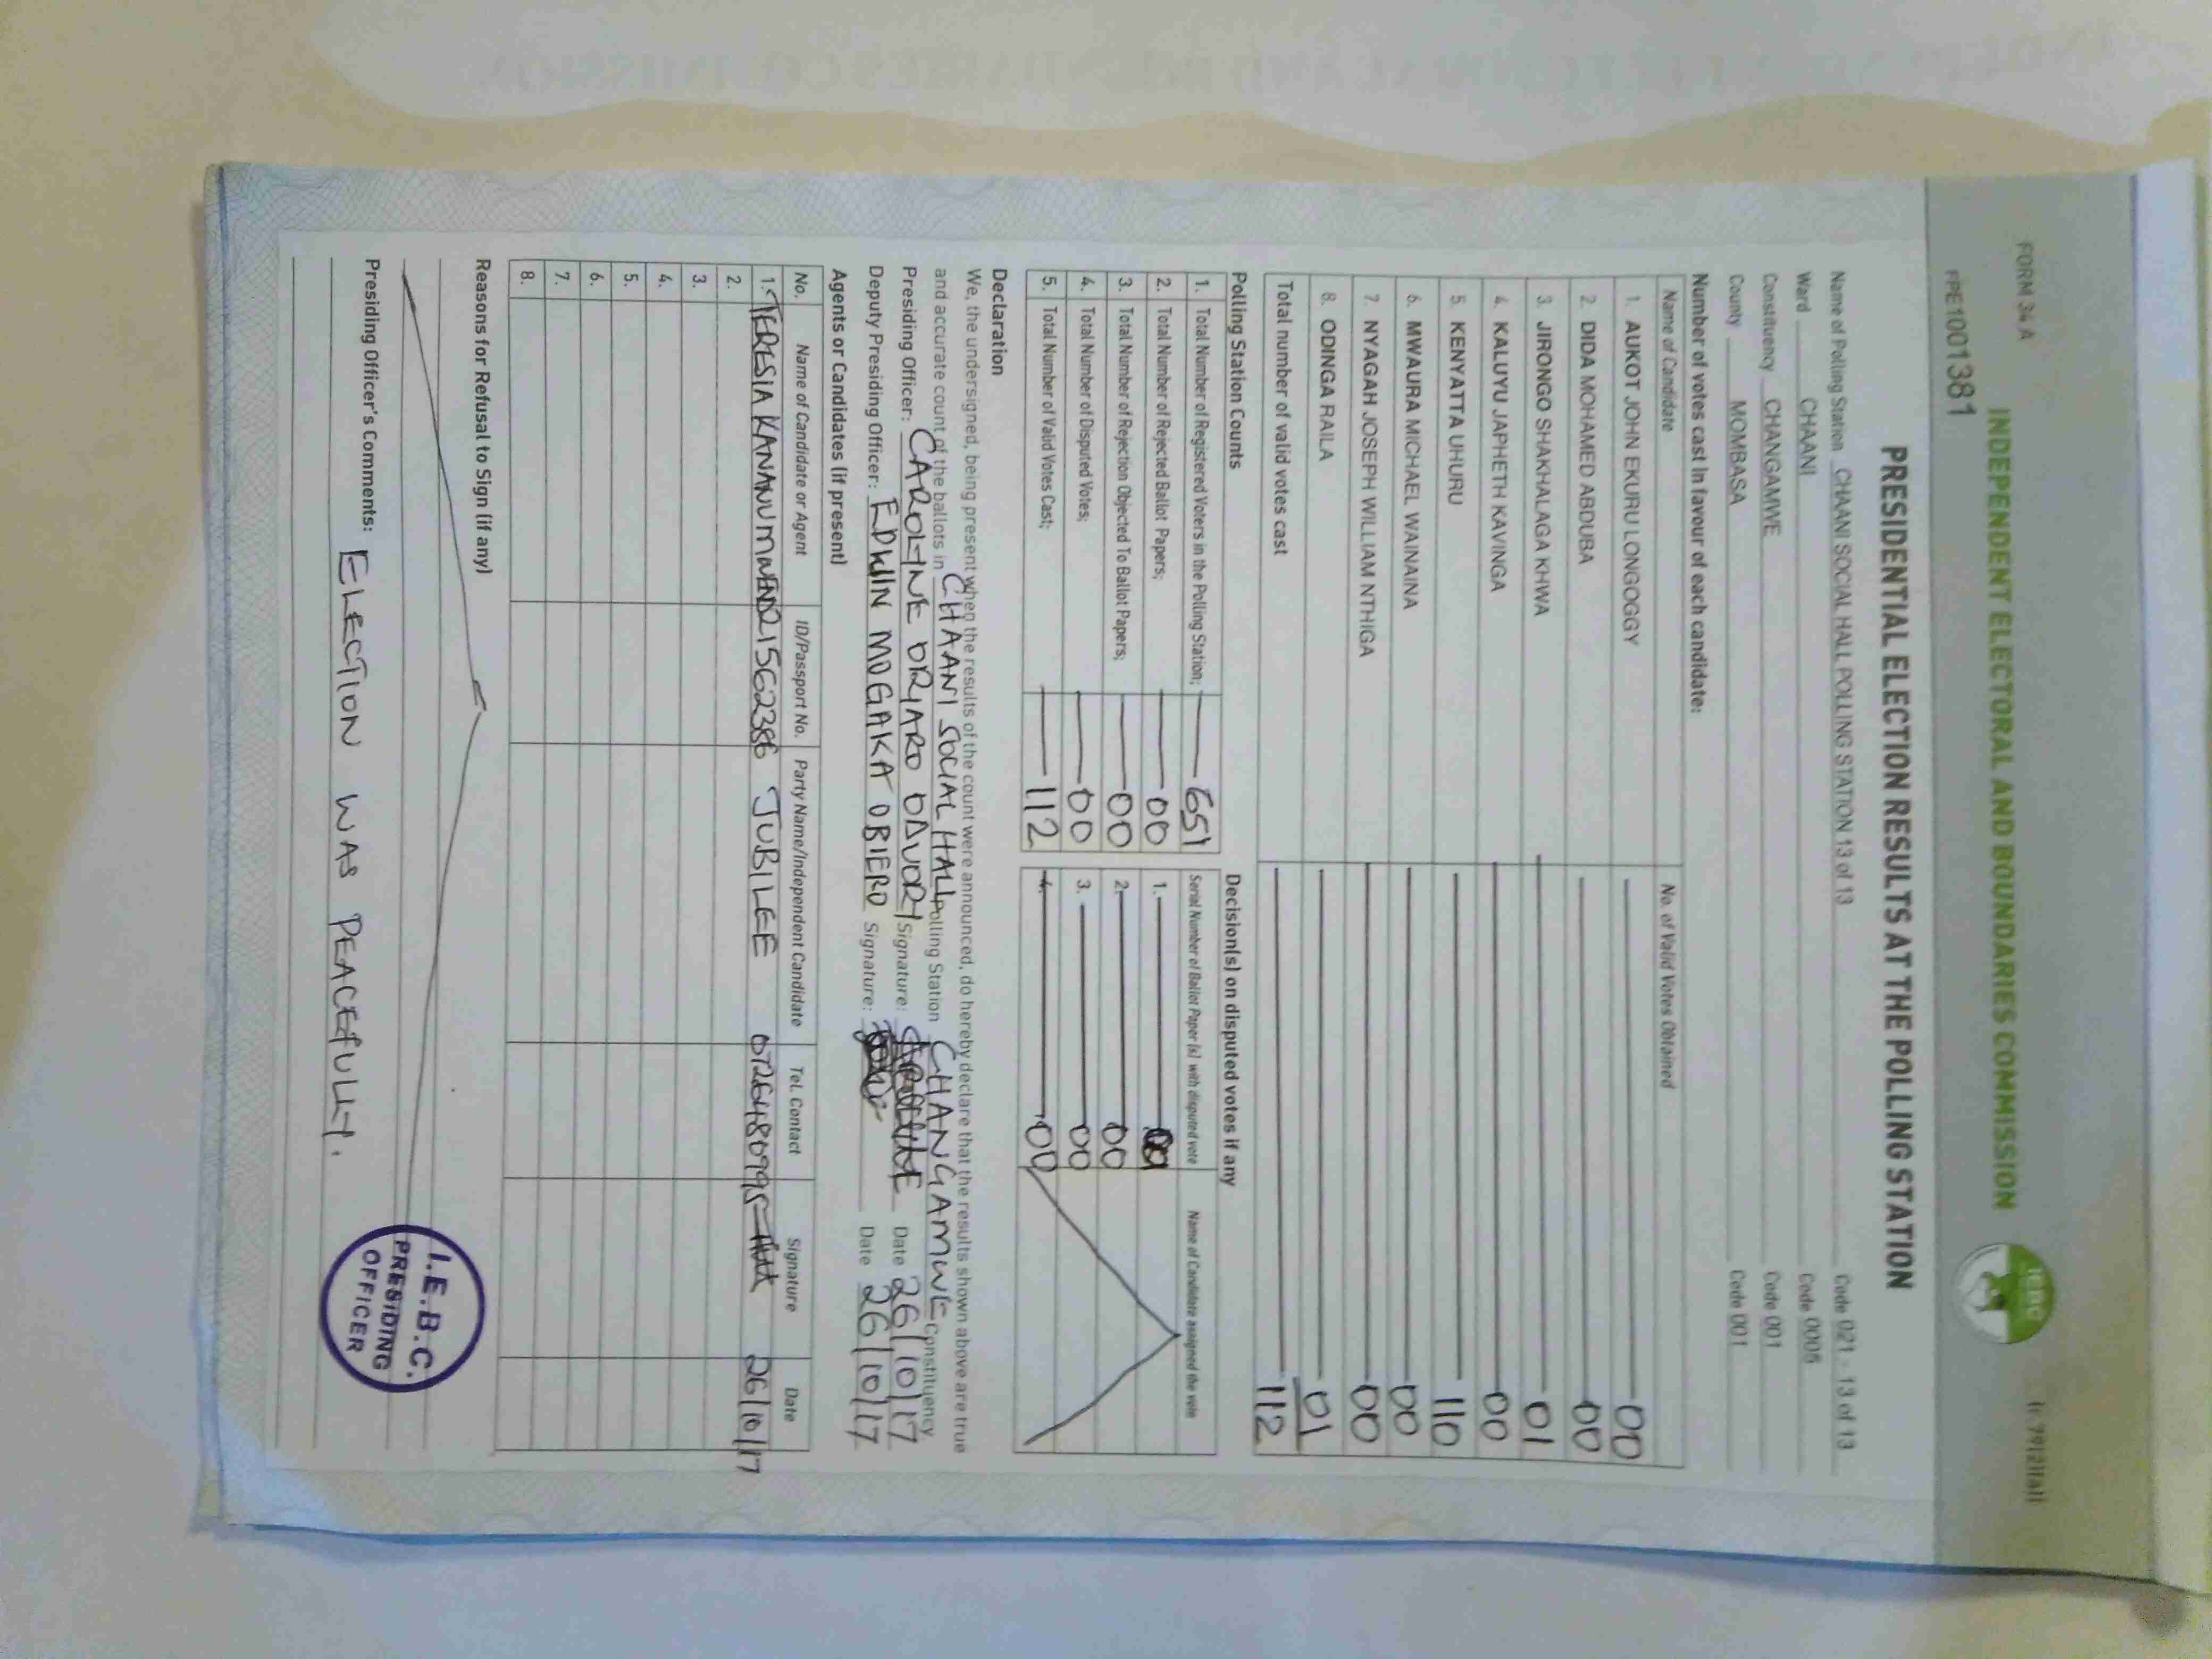 FORM 34 A
(r. 79(2)(a))
INDEPENDENT ELECTORAL AND BOUNDARIES COMMISSION
IEBC
PE1001381
PRESIDENTIAL ELECTION RESULTS AT THE POLLING STATION
Name of Polling Station CHAANI SOCIAL HALL POLLING STATION 13 of 13 Code 021 - 13 of 13
Ward CHAANI Code 0005
Constituency CHANGAMWE Code 001
County MOMBASA Code 001
Number of votes cast in favour of each candidate:
Name of Candidate No. of Valid Votes Obtained
1. AUKOT JOHN EKURU LONGOGGY 00
2. DIDA MOHAMED ABDUBA 00
3. JIRONGO SHAKHALAGA KHWA 01
4. KALUYU JAPHETH KAVINGA 00
5. KENYATTA UHURU 110
6. MWAURA MICHAEL WAINAINA 00
7. NYAGAH JOSEPH WILLIAM NTHIGA 00
8. ODINGA RAILA 01
Total number of valid votes cast 112
Polling Station Counts Decision(s) on disputed votes if any
Serial Number of Ballot Paper (s) with disputed vote Name of Candidate assigned the vote
1. Total Number of Registered Voters in the Polling Station; 651 1.
2. Total Number of Rejected Ballot Papers; 00 2. 00
3. Total Number of Rejection Objected To Ballot Papers; 00 3. 00
4. Total Number of Disputed Votes; 00 4. 00
5. Total Number of Valid Votes Cast; 112
Declaration
We, the undersigned, being present when the results of the count were announced, do hereby declare that the results shown above are true
and accurate count of the ballots in CHAANI SOCIAL HALL Polling Station CHANGAMWE Constituency
Presiding Officer: CAROLINE ORIARO ODUORI Signature: Date 26/10/17
Deputy Presiding Officer: EDWIN MOGAKA OBIERO Signature: Date 26/10/17
Agents or Candidates (if present)
No. Name of Candidate or Agent ID/Passport No. Party Name/Independent Candidate Tel. Contact Signature Date
1. TERESIA KANANU 21562386 JUBILEE 0726480995 26/10/17
2.
3.
4.
5.
6.
7.
8.
Reasons for Refusal to Sign (if any)
Presiding Officer's Comments: ELECTION WAS PEACEFULLY.
I.E.B.C.
PRESIDING
OFFICER